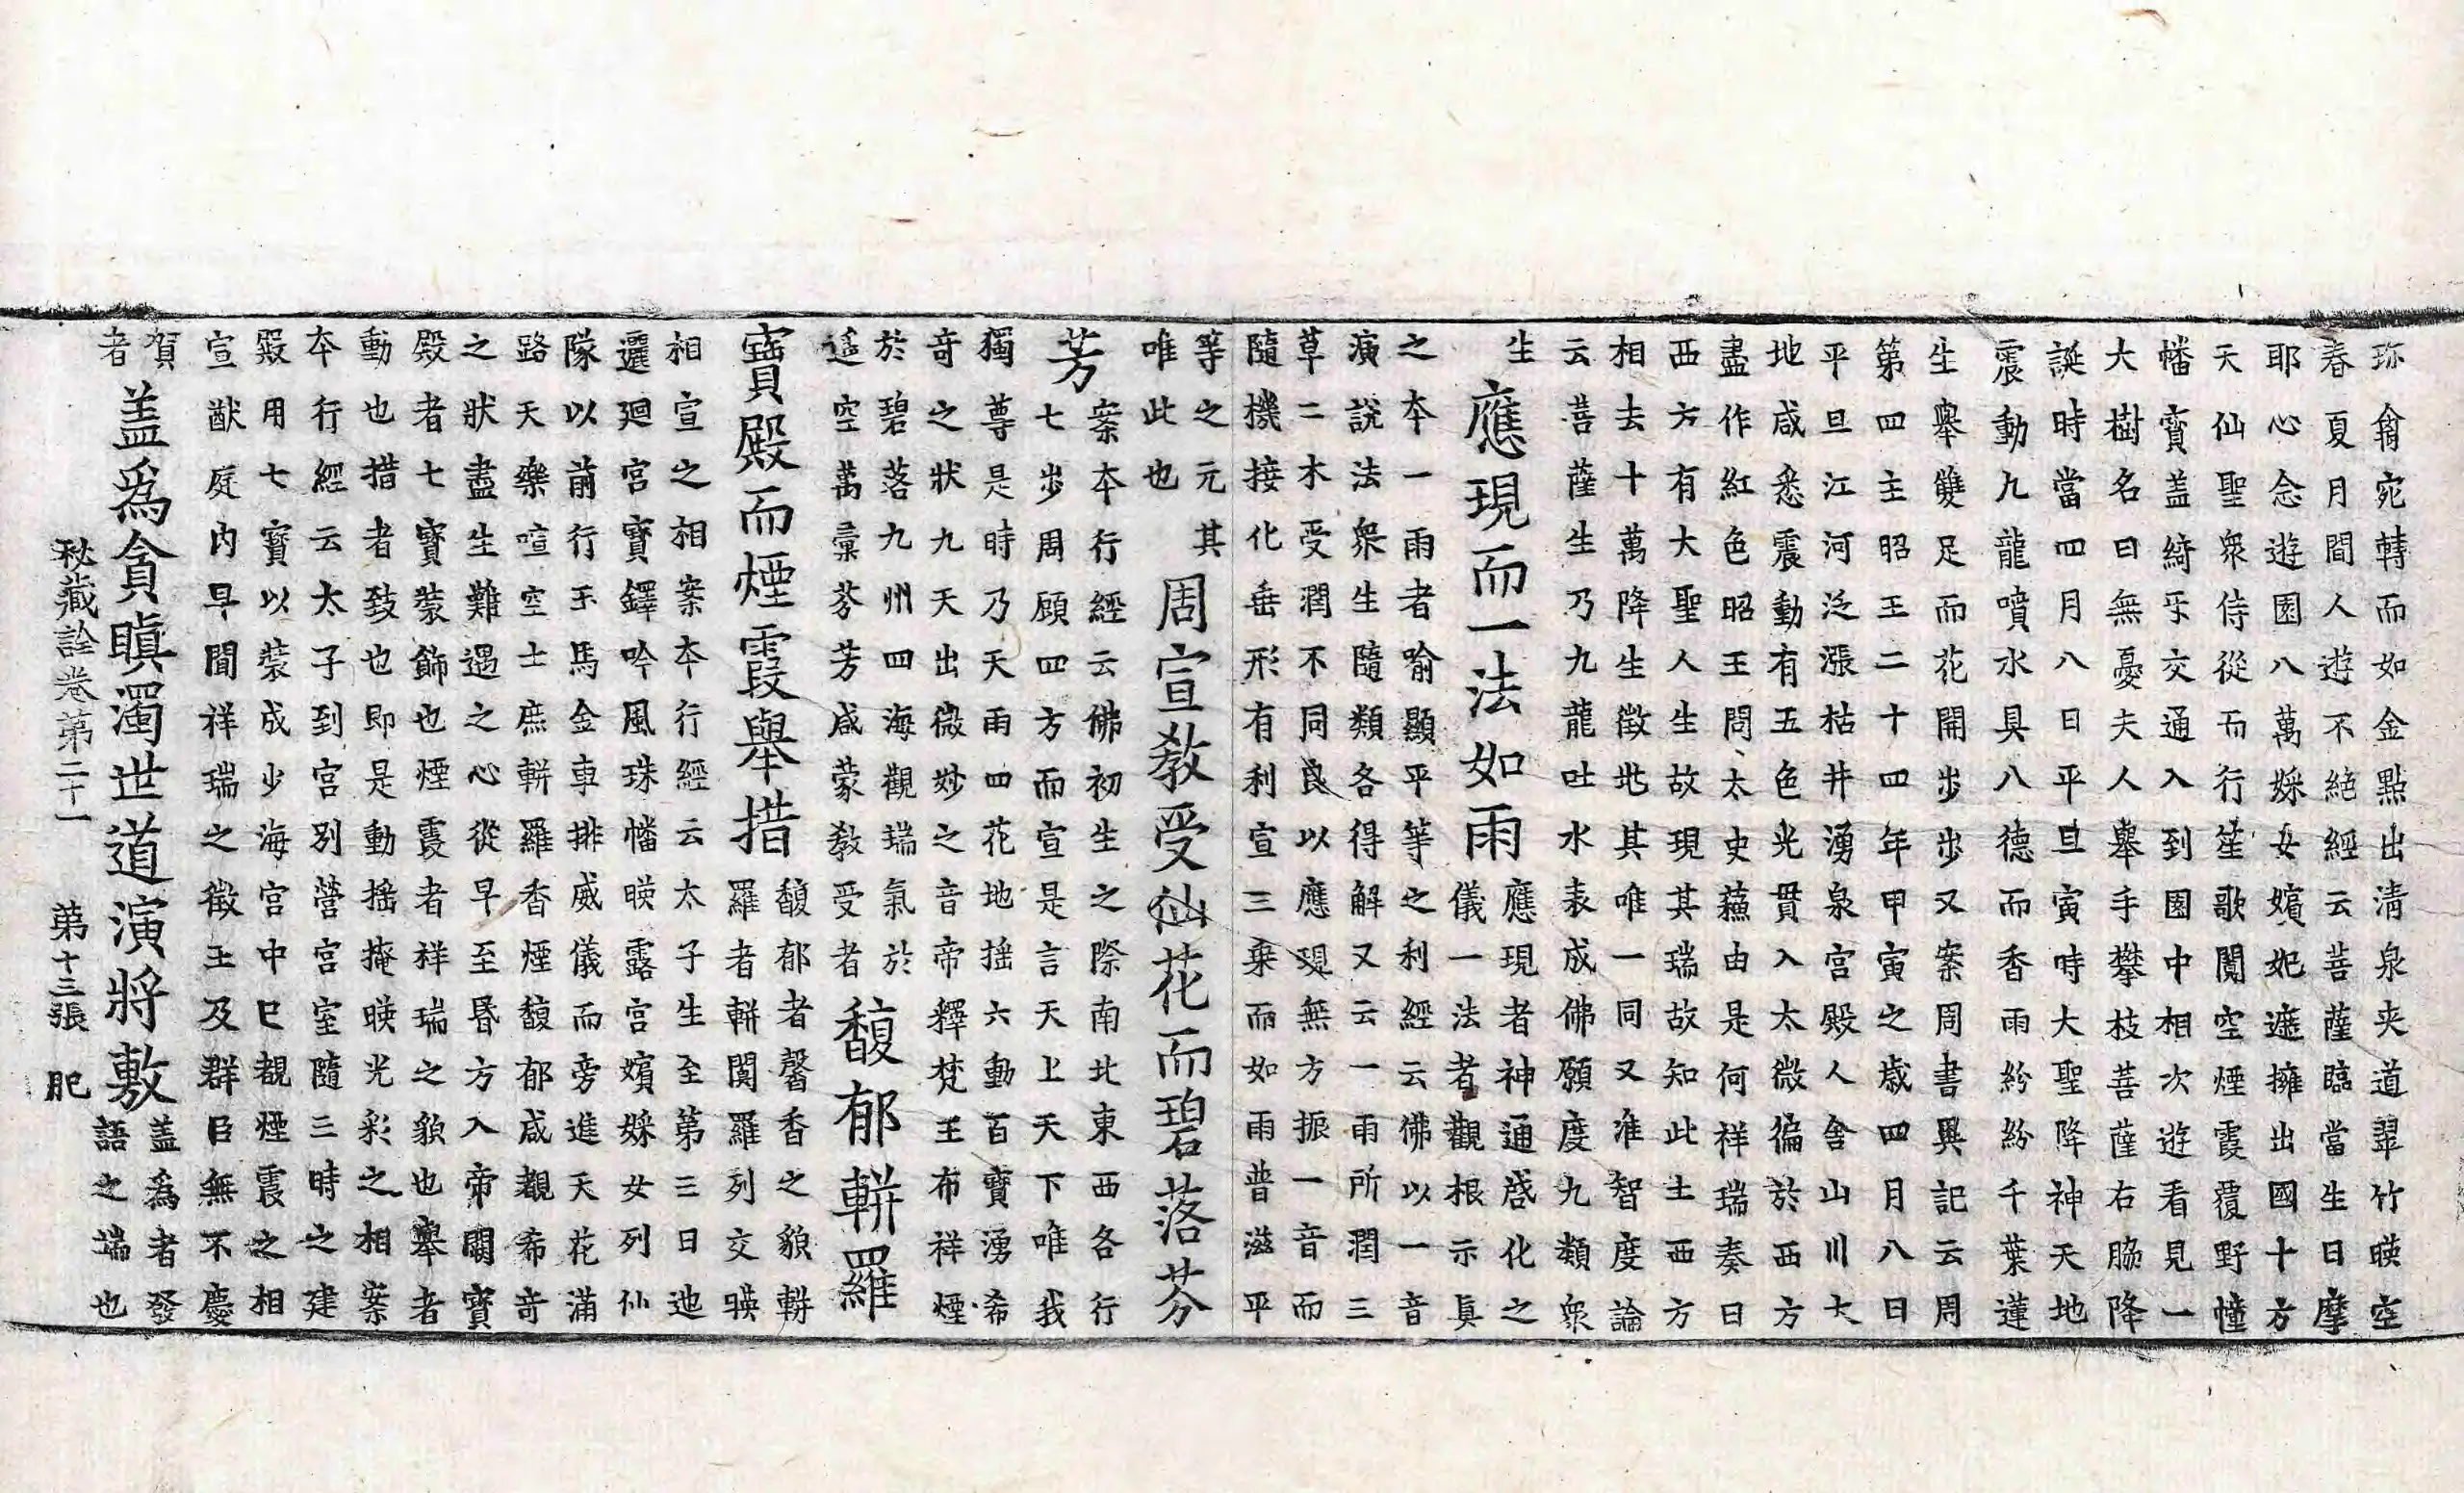 珎翕宛轉而如金點出淸泉夾道翠竹暎空
春夏月間人遊不絕經云菩薩臨當生日摩
耶心念遊園八萬婇女嬪妃遮擁出國十方
天仙聖衆侍從而行笙歌闐空煙霞覆野幢
幡寶盖綺㸦交通入到園中相次遊看見一
大樹名曰無憂夫人舉手攀枝菩薩右脇降
誕時當四月八日平旦寅時大聖降神天地
震動九龍噴水具八德而香雨紛紛千葉蓮
生舉雙足而花開步步又案周書異記云周
第四主昭王二十四年甲寅之歲四月八日
平旦江河泛漲枯井湧泉宮殿人舍山川大
地咸悉震動有五色光貫入太微徧於西方
盡作紅色昭王問太史蘓由是何祥瑞奏曰
西方有大聖人生故現其瑞故知此土西方
相去十萬降生徵地其唯一同又准智度論
云菩薩生乃九龍吐水表成佛願度九類衆
生
應現而一法如雨
應現者神通啓化之
儀一法者觀根示眞
之本一雨者喻顯平等之利經云佛以一音
演說法衆生隨類各得解又云一雨所潤三
草二木受潤不同良以應現無方振一音而
隨機接化垂形有利宣三乗而如雨普滋平
等之元其
唯此也
周宣敎受仙花而碧落芬
芳
案本行經云佛初生之際南北東西各行
七步周顧四方而宣是言天上天下唯我
獨尊是時乃天雨四花地搖六動百寶湧希
奇之狀九天出微妙之音帝釋梵王布祥煙
於碧落九州四海觀瑞氣於
遥空萬彙芬芳咸蒙敎受者
馥郁軿羅
寶殿而煙霞舉措
馥郁者馨香之貌軿
羅者軿闐羅列交暎
相宣之相案本行經云太子生至第三日迆
邐廻宮寶鐸吟風珠幡暎露宮嬪婇女列仙
隊以前行玉馬金車排威儀而旁進天花滿
路天樂喧空士庶軿羅香煙馥郁咸覩希奇
之狀盡生難遇之心從早至昏方入帝闕寶
殿者七寶裝飾也煙霞者祥瑞之貌也舉者
動也措者致也即是動搖掩暎光彩之相案
本行經云太子到宮別營宮室隨三時之建
殿用七寶以裝成少海宮中巳覩煙霞之相
宣猷庭內早聞祥瑞之徵王及群臣無不慶
賀
者
盖爲貪瞋濁世道演將敷
盖爲者發
語之端也
秘藏詮卷第二十一 第十三張 肥